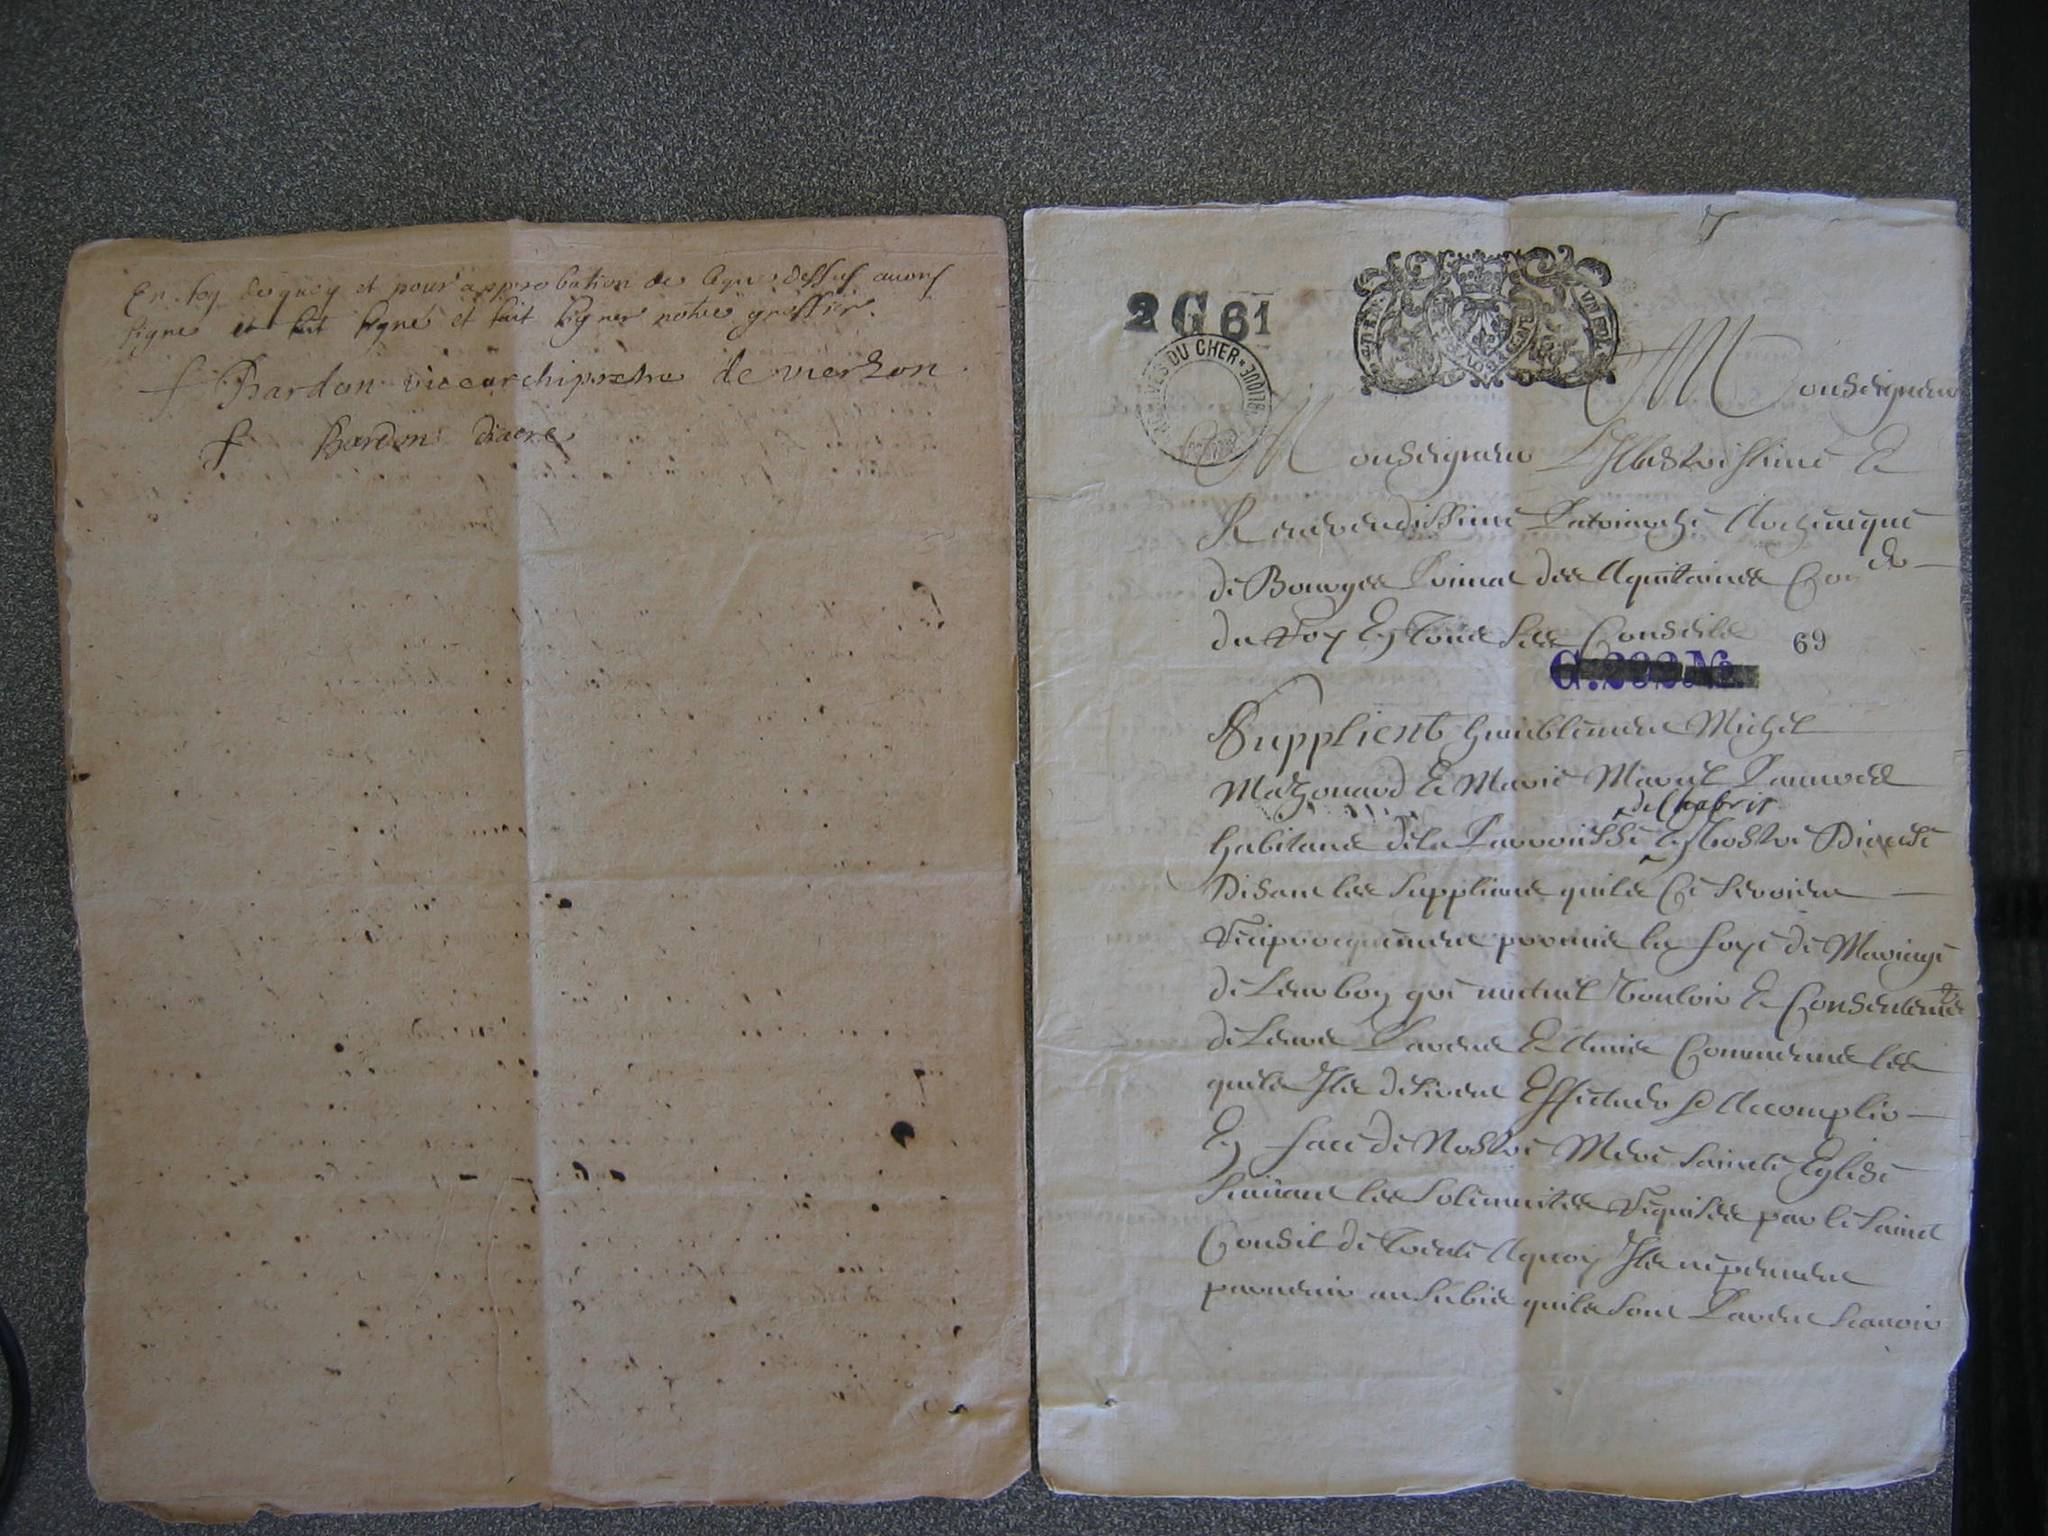 En foy dequoy et pour approbation de ceque dessus avons
signe et fait signé et fait signer notre greffier.
Bardon vicearchiprestre de vierzon
Bardon diacre
2 G 61
ARCHIVES DU CHER
Monseigneur
Monseigneur L'Illustrissime Et
Reverendissime Patriarche Archeveque
de Bourges Primat des Aquitaines Con
du Roy En tous ses Conseils
69
G. 292 No.
Supplient humblement Michel
Mazouard Et Marie Pauvres
de Chabris
habitans de la Parroisse En vostre Diocese
Disant les Supplians quils Ce seroient
reciproquement promis la foye de Mariage
de Leur bon gré mutuel vouloir Et Consentement
de Leurs Parens Et Amis Communs les
quels Ils desirent Effectuer & Accomplir
En face de Nostre Mere saincte Eglise
suivant les solemnites requises par le saint
Consil de trente Aquoy Ils ne peuvent
parvenir au subie quils sont Parent scavoir